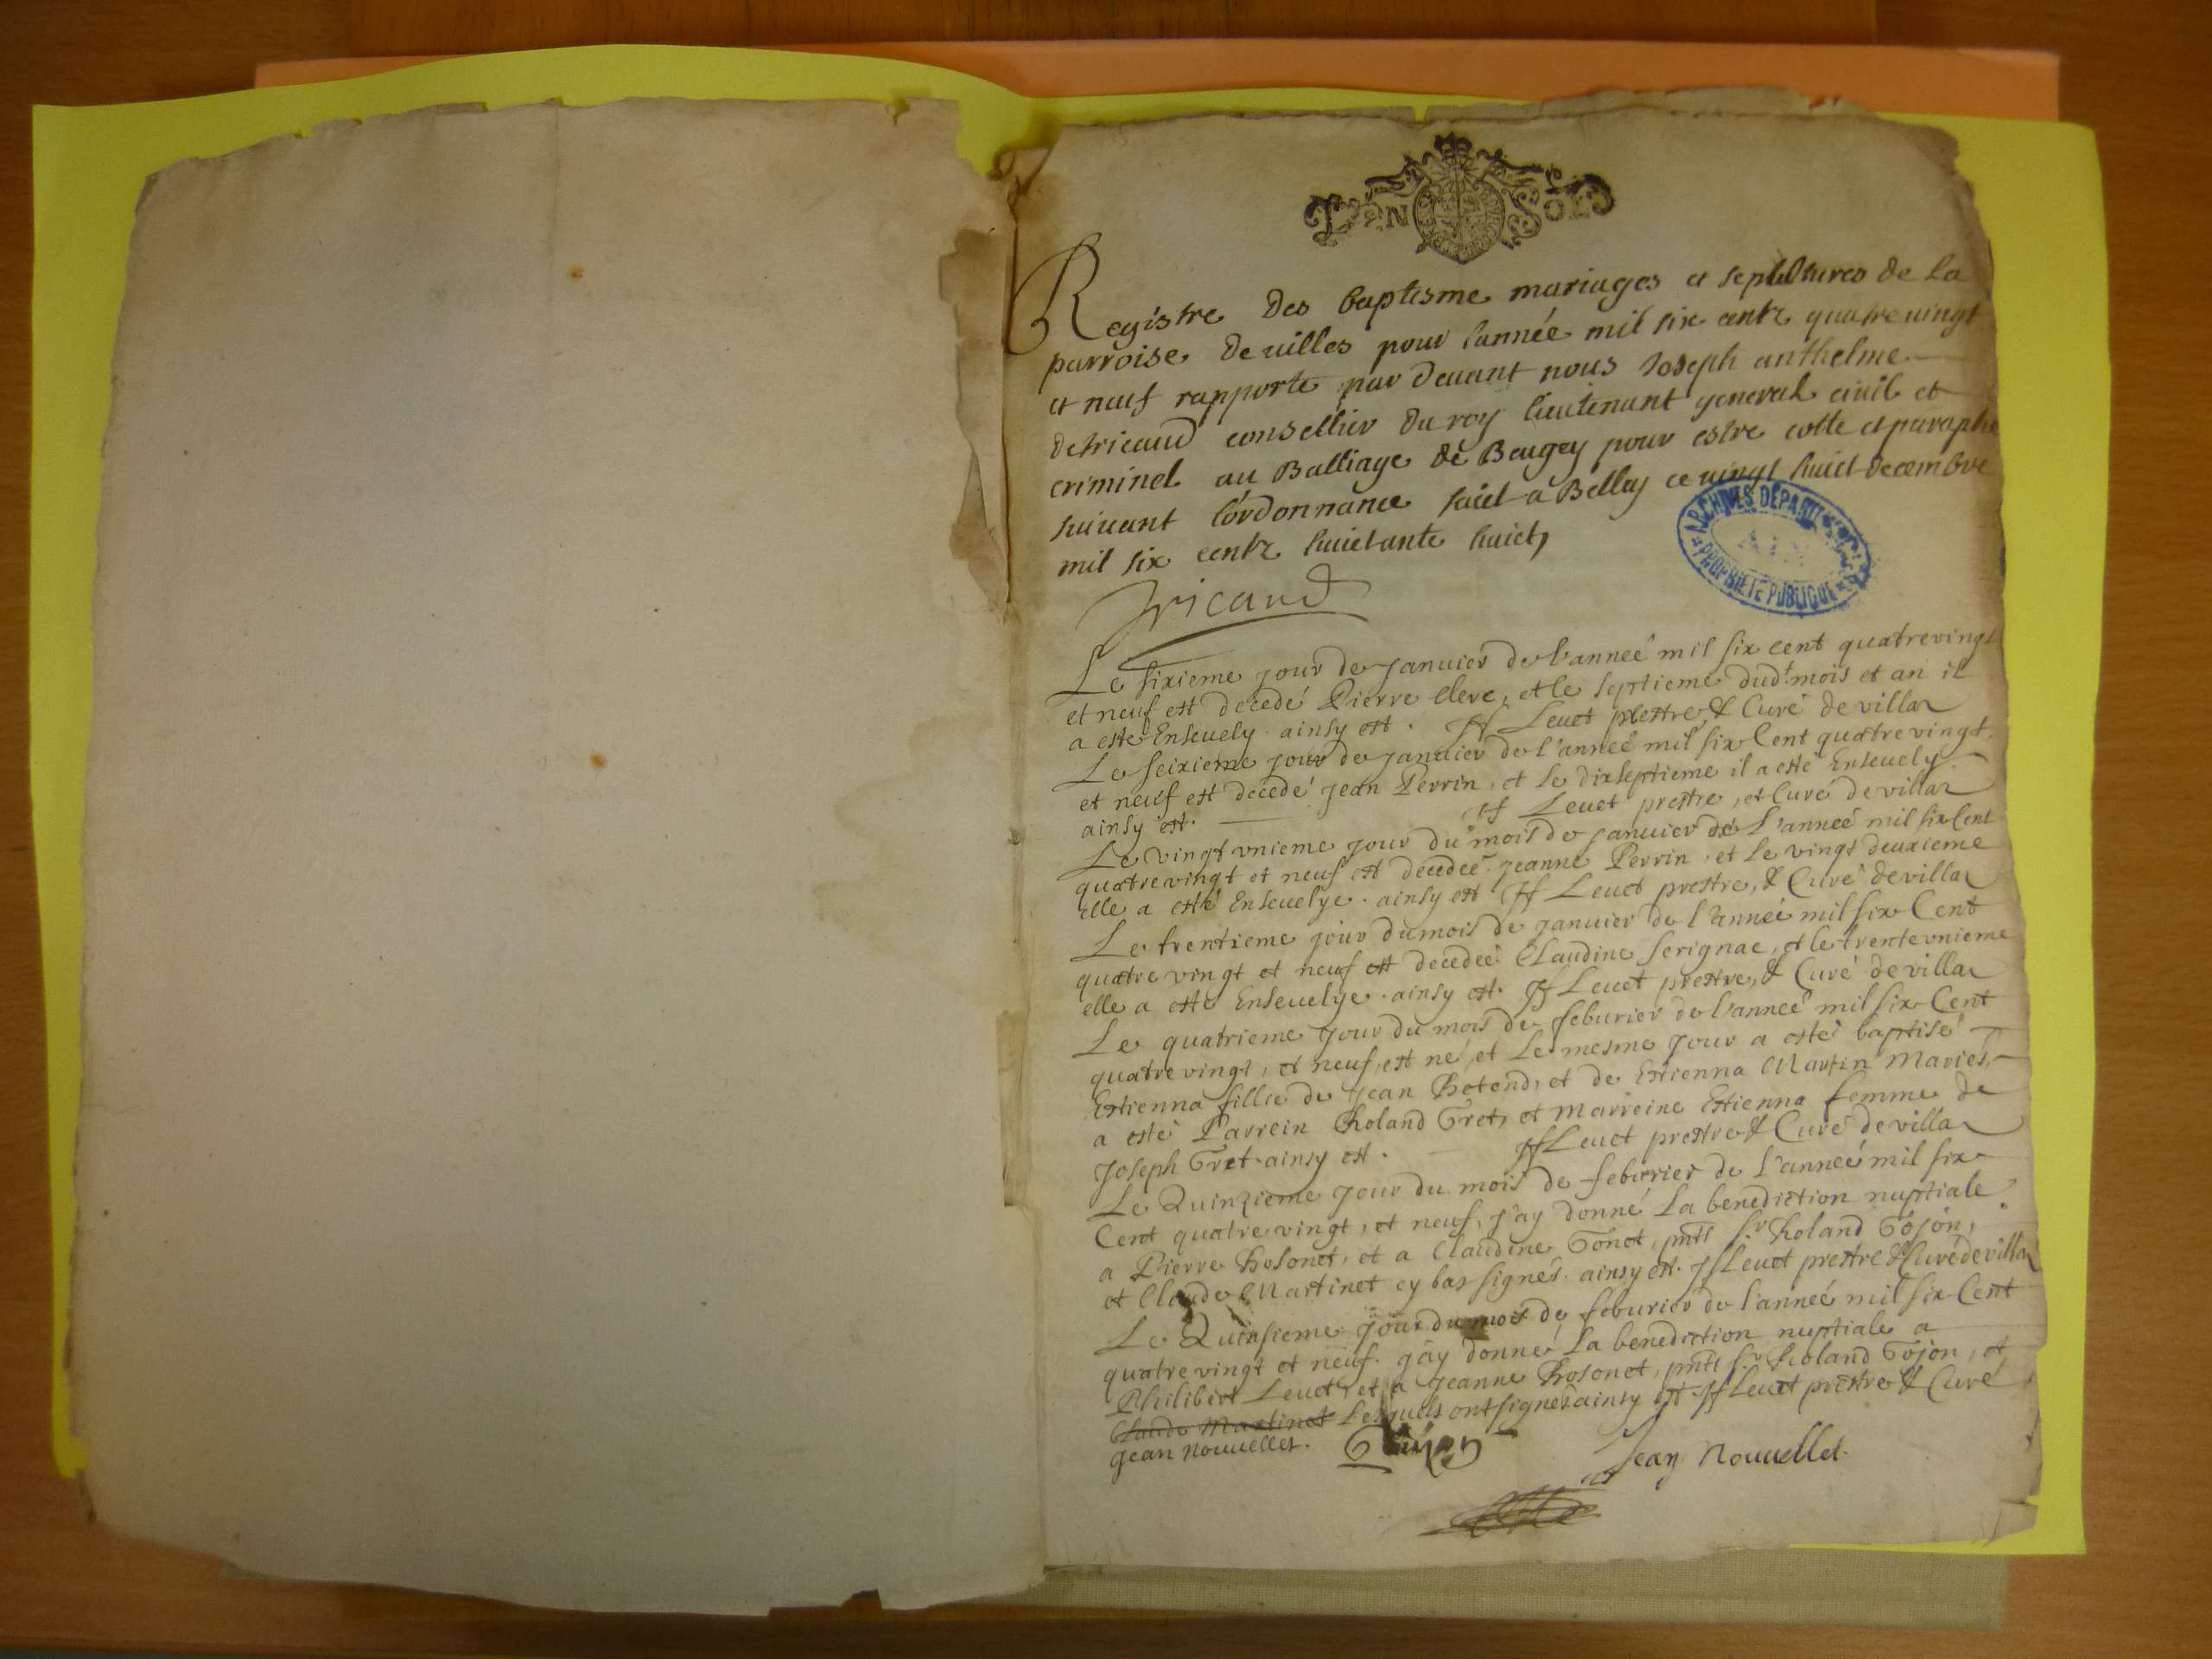 Registre des baptesme mariages et sepultures de la
parroise de villes pour l'année mil six centz quatre uingt
et neuf rapporte par deuant nous Joseph anthelme
detricaud consellier du roy lieutenant general ciuil et
criminel au Balliage de Beugey pour estre cotte et paraphe
suiuant l'ordonnance faict a Belley ce uingt huict decembre
mil six centz huictante huict,
ARCHIVES DÉPART
AIN
PROPRIÉTÉ PUBLIQUE
Tricaud
Le sixieme jour de januier de l'anneé mil six cent quatrevingt
et neuf est decedé Pierre Clerc, et le septieme dud.t mois et an il
a esté Enseuely. ainsy est. Jf Leuet prestre, & Curé de villar
Le seixieme jour de januier de l'anneé mil six Cent quatre vingt,
et neuf est decedé jean Perrin, et le dixseptieme il a esté Enseuely
ainsy est. Jf Leuet prestre, et Curé de villar
Le vingt vnieme jour du mois de januier de l'anneé mil six Cent
quatrevingt et neuf est decedeé jeanne Perrin, et le vingt deuxieme
elle a esté Enseuelye. ainsy est Jf Leuet prestre, & Curé de villar
Le trentieme jour du mois de januier de l'anneé mil six Cent
quatre vingt et neuf est decedeé Claudine Serignac, et le trente vnieme
elle a esté Enseuelye. ainsy est. Jf Leuet prestre, & Curé de villar
Le quatrieme jour du mois de feburier de l'anneé mil six Cent
quatre vingt, et neuf, est né, et le mesme jour a esté baptisé
Estienna fillie de jean et de Estienna Martin Mariés,
a esté Parrein Roland Gret, et Marreine Estienna femme de
Joseph Gret. ainsy est. Jf Leuet prestre & Curé de villar
Le Quinzieme jour du mois de feburier de l'anneé mil six
Cent quatre vingt, et neuf, j'ay donné la benediction nuptiale
a Pierre Rosonet, et a Claudine Gonet, pnts S.r Roland Gojon,
et Claude Martinet cy bas signés. ainsy est. Jf Leuet prestre & Curé de villar
Le Quinsieme jour du mois de feburier de l'anneé mil six Cent
quatre vingt et neuf. j'ay donné la benediction nuptiale a
Philibert Leuet, et a Jeanne Rosonet, pnts S.r Roland Gojon, et
Claude Martinet Lesquels ont signés. ainsy est. Jf Leuet prestre & Curé
jean nouuellet. Goujon Jean Nouuellet.